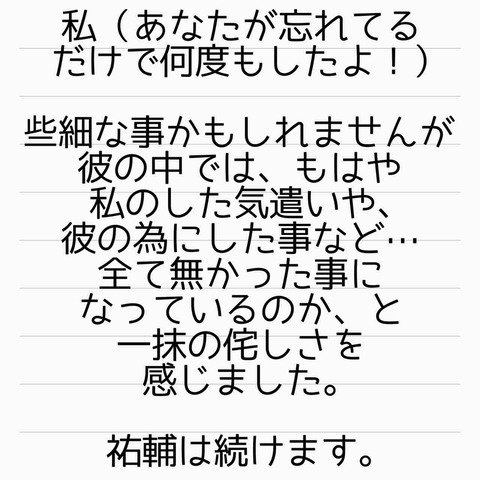 私（あなたが忘れてる
だけで何度もしたよ！）
些細な事かもしれませんが
彼の中では、もはや
私のした気遣いや、
彼の為にした事など…
全て無かった事に
なっているのか、と
一抹の侘しさを
感じました。
祐輔は続けます。